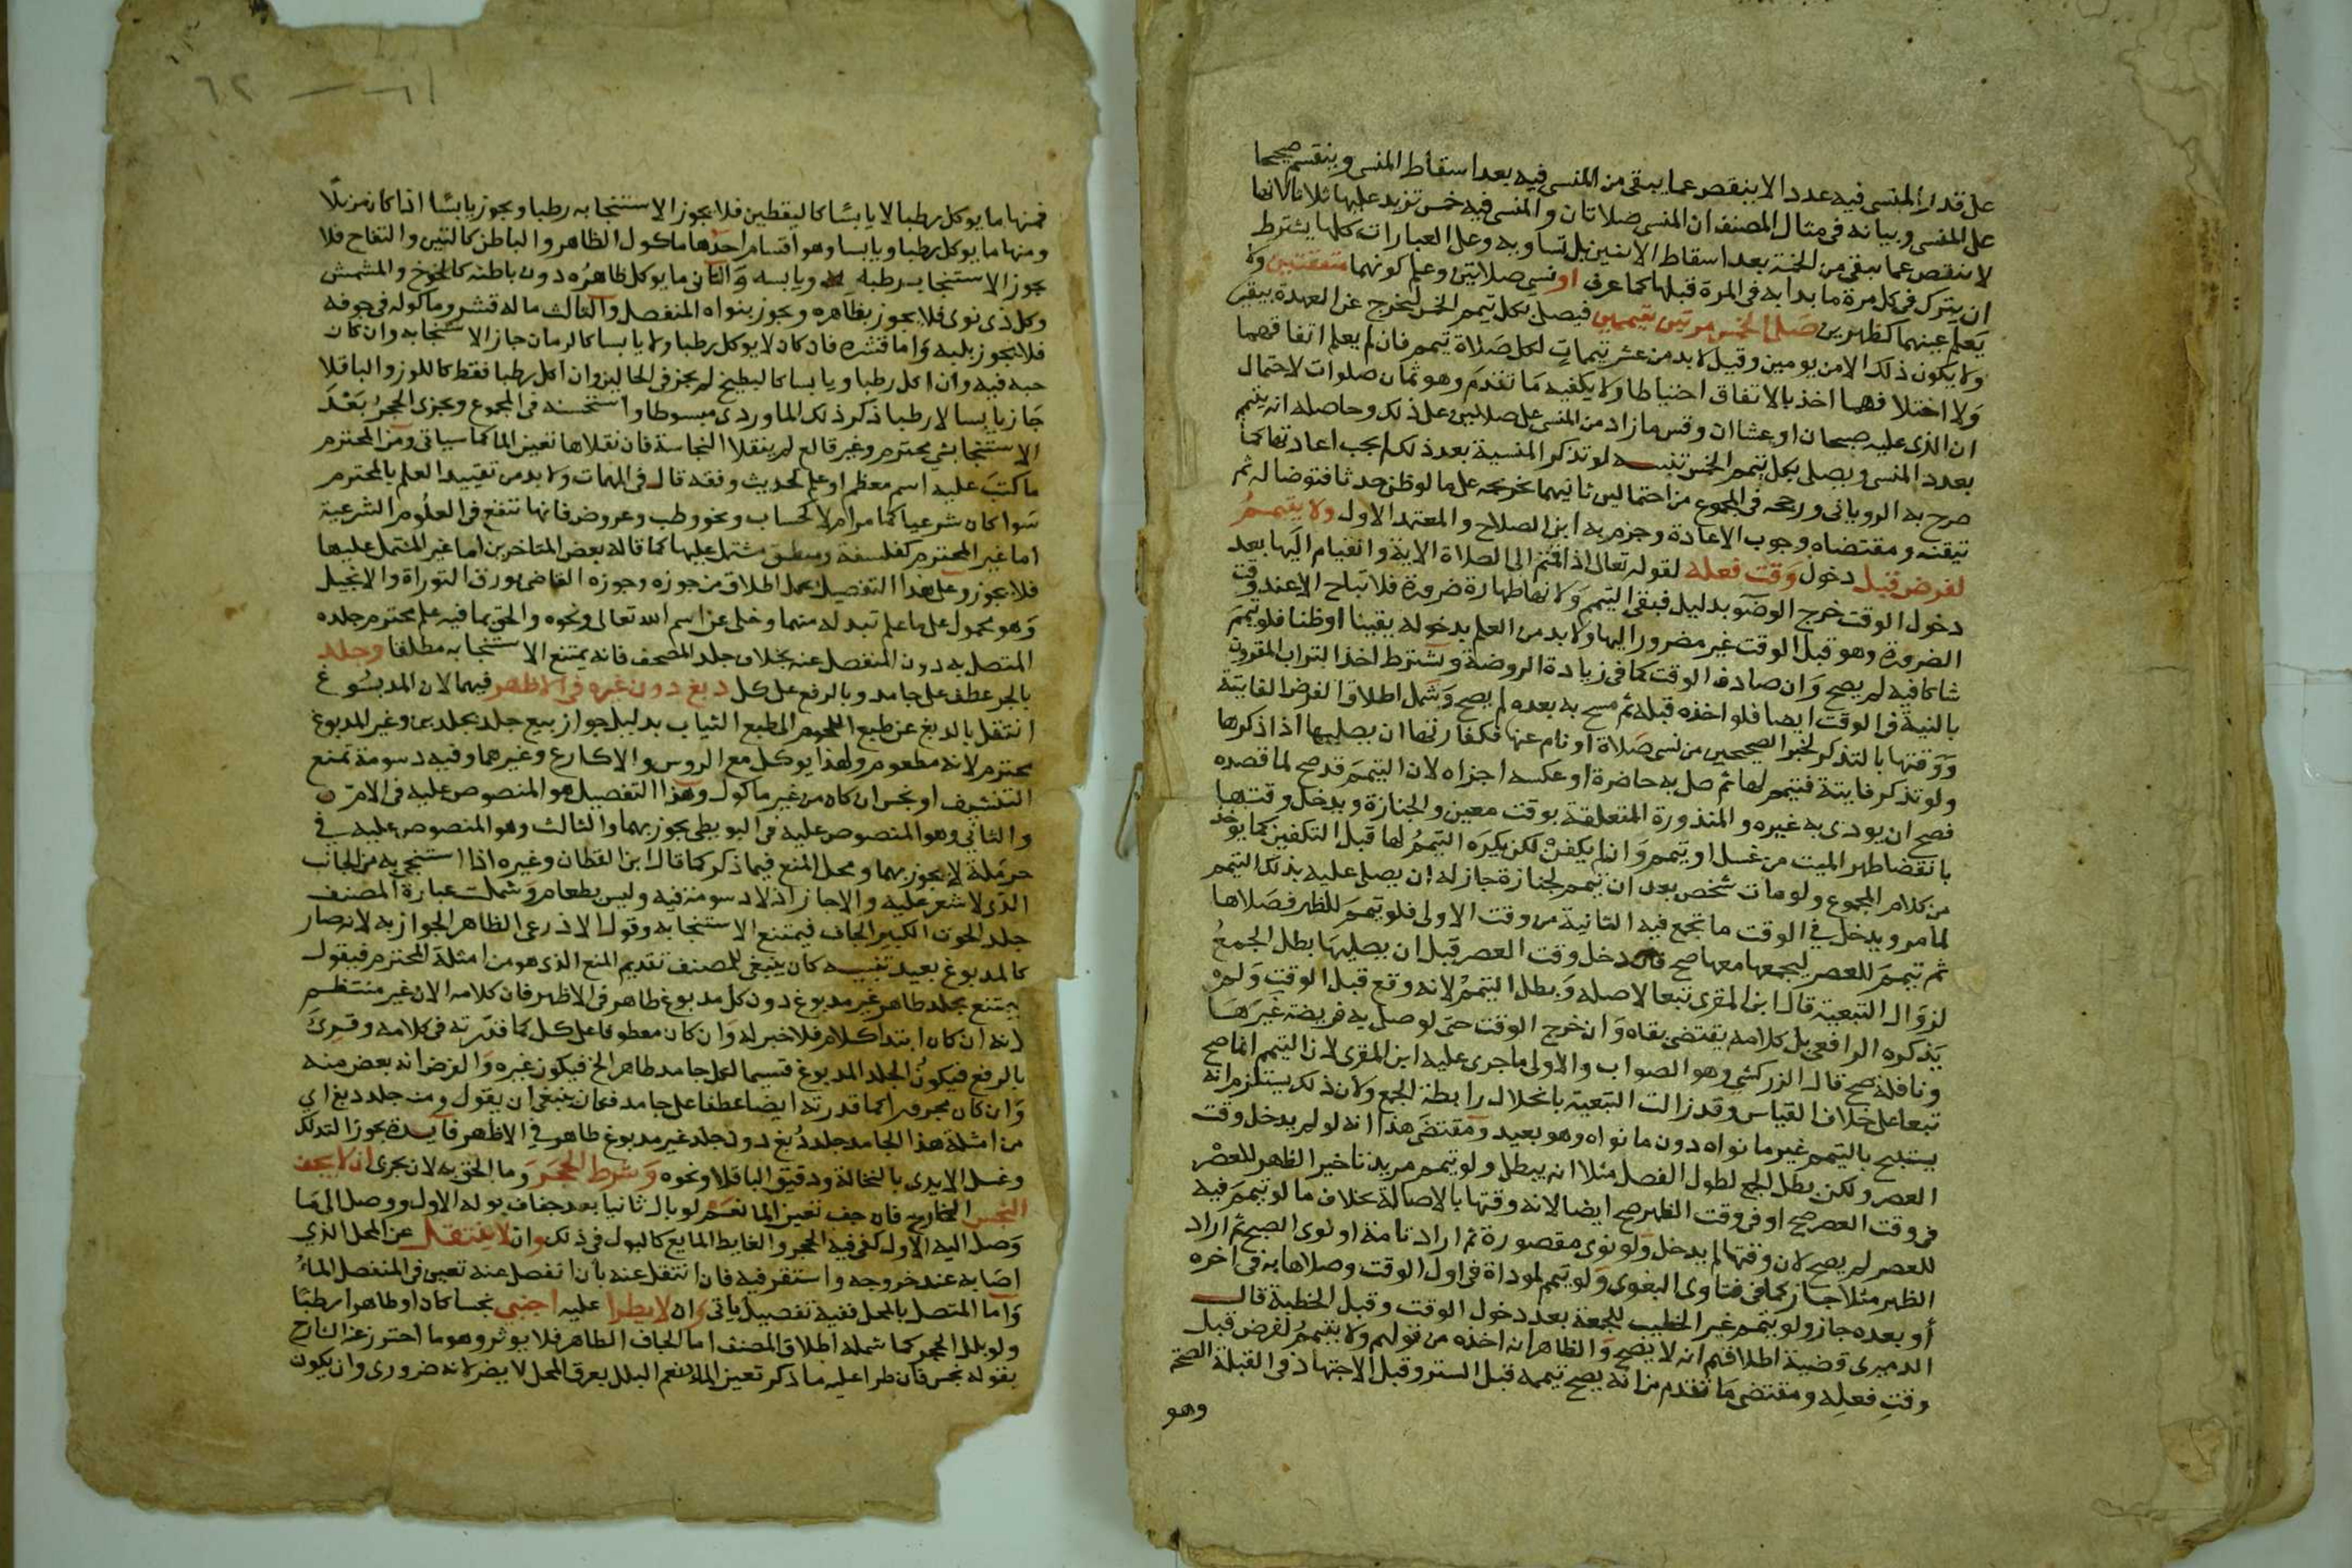 على قدر المنسى فيه عددا لا ينقص عما يبقى من المنسى فيه بعد اسقاط المنسى وينقسم صحيحا
على المنسى وبيانه فى مثال المصنف ان المنسى صلاتان والمنسى فيه خمس تزيد عليها ثلاثا لانها
لا تنقص عما يبقى من الخمسة بعد اسقاط الاثنين بل تساويه وعلى العبارات كلها يشترط
ان يترك فى كل مرة ما بدا به فى المرة قبلها كما عرف او نسى صلاتين وعلم كونهما متفقتين ولا
يعلم عينهما كظهرين صلى الخمس مرتين بتيممين فيصلى بكل تيمم الخمس ليخرج عن العهدة بيقين
ولا يكون ذلك الا من يومين وقيل لابد من عشر تيممات لكل صلاة تيمم فان لم يعلم اتفاقهما
ولا اختلافهما اخذ بالاتفاق احتياطا ولا يكفيه ما تقدم وهو ثمان صلوات لاحتمال
ان الذى عليه صبحان او عشاان وقس ما زاد من المنسى على صلاتين على ذلك وحاصله انه يتيمم
بعدد المنسى ويصلى بكل تيمم الخمس تنبيه لو تذكر المنسية بعد ذلك لم يجب اعادتها كما
صرح به الرويانى ورجحه فى المجموع من احتمالين ثانيهما تخريجه على ما لو ظن حدثا فتوضا له ثم
تيقنه ومقتضاه وجوب الاعادة وجزم به ابن الصلاح والمعتمد الاول ولا يتيمم
لفرض قبل دخول وقت فعله لقوله تعالى اذا قمتم الى الصلاة الاية والقيام اليها بعد
دخول الوقت خرج الوضوء بدليل فبقى التيمم ولانها طهارة ضرورة فلا تباح الا عند وقت
الضرورة وهو قبل الوقت غير مضرور اليها ولا بد من العلم بدخوله يقينا او ظنا فلو تيمم
شاكا فيه لم يصح وان صادف الوقت كما فى زيادة الروضة ويشترط اخذ التراب المقرون
بالنية فى الوقت ايضا فلو اخذه قبله ثم مسح به بعده لم يصح وشمل اطلاق الفرض الفايتة
ووقتها بالتذكر لخبر الصحيحين من نسى صلاة او نام عنها فكفارتها ان يصليها اذا ذكرها
ولو تذكر فايتة فتيمم لها ثم صلى به حاضرة او عكسه اجزاه لان التيمم قد صح لما قصده
فصح ان يودى به غيره والمنذورة المتعلقة بوقت معين والجنازة ويدخل وقتها
بانقضا طهر الميت من غسل او تيمم وان لم يكفن لكن يكره التيمم لها قبل التكفين كما يوخذ
من كلام المجموع ولو مات شخص بعد ان تيمم لجنازة جاز له ان يصلى عليه بذلك التيمم
لما مر ويدخل فى الوقت ما تجمع فيه الثانية من وقت الاولى فلو تيمم للظهر فصلاها
ثم تيمم للعصر ليجمعها معها صح فان دخل وقت العصر قبل ان يصليها بطل الجمع
لزوال التبعية قال ابن المقرى تبعا لاصله وبطل التيمم لانه وقع قبل الوقت ولم
يذكره الرافعى بل كلامه يقتضى بقاه وان خرج الوقت حتى لو صلى به فريضة غيرها
ونافلة صح قال الزركشى وهو الصواب والاولى ما جرى عليه ابن المقرى لان التيمم انما صح
تبعا على خلاف القياس وقد زالت التبعية بانحلال رابطة الجمع ولان ذلك يستلزم انه
يستبيح بالتيمم غير ما نواه دون ما نواه وهو بعيد ومقتضى هذا انه لو لم يدخل وقت
العصر ولكن بطل الجمع لطول الفصل مثلا انه يبطل ولو تيمم مريد تاخير الظهر للعصر
فى وقت العصر صح او فى وقت الظهر صح ايضا لانه وقتها بالاصالة بخلاف ما لو تيمم فيه
للعصر لم يصح لان وقتها لم يدخل ولو نوى مقصورة ثم اراد تامة او نوى الصبح ثم اراد
الظهر مثلا جاز كما فى فتاوى البغوى ولو تيمم لموداة فى اول الوقت وصلاها به فى اخره
او بعده جاز ولو تيمم غير الخطيب للجمعة بعد دخول الوقت وقبل الخطبة قال
الدميرى قضية اطلاقهم انه لا يصح والظاهر انه اخذه من قولهم ولا يتيمم لفرض قبل
وقت فعله ومقتضى ما تقدم من انه يصح تيممه قبل الستر وقبل الاجتهاد فى القبلة الصحة
وهو
٦٢ — ٦١
فمنها ما يوكل رطبا لا يابسا كاليقطين فلا يجوز الاستنجا به رطبا ويجوز يابسا اذا كان مزيلا
ومنها ما يوكل رطبا ويابسا وهو اقسام احدها ماكول الظاهر والباطن كالتين والتفاح فلا
يجوز الاستنجا برطبه ويابسه والثانى ما يوكل ظاهره دون باطنه كالخوخ والمشمش
وكل ذى نوى فلا يجوز بظاهره ويجوز بنواه المنفصل والثالث ما له قشر وماكوله فى جوفه
فلا يجوز بلبه واما قشره فان كان لا يوكل رطبا ولا يابسا كالرمان جاز الاستنجا به وان كان
حبه فيه وان اكل رطبا ويابسا كالبطيخ لم يجز فى الحالين وان اكل رطبا فقط كاللوز والباقلا
جاز يابسا لا رطبا ذكر ذلك الماوردى مبسوطا واستحسنه فى المجموع ويجزى الحجر بعد
الاستنجا بشى محترم وغير قالع لم ينقلا النجاسة فان نقلاها تعين الما كما سياتى ومن المحترم
ما كتب عليه اسم معظم او علم كحديث وفقه قال فى المهمات ولا بد من تقييد العلم بالمحترم
سوا كان شرعيا كما مر ام لا كحساب ونحو وطب وعروض فانها تنفع فى العلوم الشرعية
اما غير المحترم كفلسفة ومنطق مشتمل عليها كما قاله بعض المتاخرين اما غير المشتمل عليها
فلا يجوز وعلى هذا التفصيل يحمل اطلاق من جوزه وجوزه القاضى بورق التوراة والانجيل
وهو محمول على ما علم تبدله منهما وخلى عن اسم الله تعالى ونحوه والحق بما فيه علم محترم جلده
المتصل به دون المنفصل عنه بخلاف جلد المصحف فانه يمتنع الاستنجا به مطلقا وجلد
بالجر عطف على جامد وبالرفع على كل دبغ دون غيره فى الاظهر فيهما لان المدبوغ
انتقل بالدبغ عن طبع اللحوم الى طبع الثياب بدليل جواز بيع جلد بجلدين وغير المدبوغ
محترم لانه مطعوم ولهذا يوكل مع الروس والاكارع وغيرهما وفيه دسومة تمنع
التنشيف او نجس ان كان من غير ماكول وهذا التفصيل هو المنصوص عليه فى الام
والثانى وهو المنصوص عليه فى البويطى يجوز بهما والثالث وهو المنصوص عليه فى
حرملة لا يجوز بهما ومحل المنع فيما ذكر كما قال ابن القطان وغيره اذا استنجى به من الجانب
الذى لا شعر عليه والا جاز اذ لا دسومة فيه وليس بطعام وشملت عبارة المصنف
جلد الحوت الكبير الجاف فيمتنع الاستنجا به وقول الاذرعى الظاهر الجواز به لانه صار
كالمدبوغ بعيد تنبيه كان ينبغى للمصنف تقديم المنع الذى هو من امثلة المحترم فيقول
يمتنع بجلد طاهر غير مدبوغ دون كل مدبوغ طاهر فى الاظهر فان كلامه الان غير منتظم
لانه ان كان ابتدا كلام فلا خبر له وان كان معطوفا على كل كما قدرته فى كلامه وقرئ
بالرفع فيكون الجلد المدبوغ قسيما لكل جامد طاهر الخ فيكون غيره والفرض انه بعض منه
وان كان مجرورا كما قدرته ايضا عطفا على جامد فكان ينبغى ان يقول ومنه جلد دبغ اى
من امثلة هذا الجامد جلد دبغ دون جلد غير مدبوغ طاهر فى الاظهر فايدة يجوز التدلك
وغسل الايدى بالنخالة ودقيق الباقلا ونحوه وشرط الحجر وما الحق به لان يجزى ان لا يجف
النجس الخارج فان جف تعين الما نعم لو بال ثانيا بعد جفاف بوله الاول ووصل الى ما
وصل اليه الاول كفى فيه الحجر والغايط المايع كالبول فى ذلك وان لا ينتقل عن المحل الذى
اصابه عند خروجه واستقر فيه فان انتقل عنه بان انفصل عنه تعين فى المنفصل الماء
واما المتصل بالمحل ففيه تفصيل ياتى وان لا يطرا عليه اجنبى نجسا كان او طاهرا رطبا
ولو ببلل الحجر كما شمله اطلاق المصنف اما الجاف الطاهر فلا يوثر وهو ما احترز عنه الشارح
بقوله نجس فان طرا عليه ما ذكر تعين الما نعم البلل بعرق المحل لا يضر لانه ضرورى وان يكون